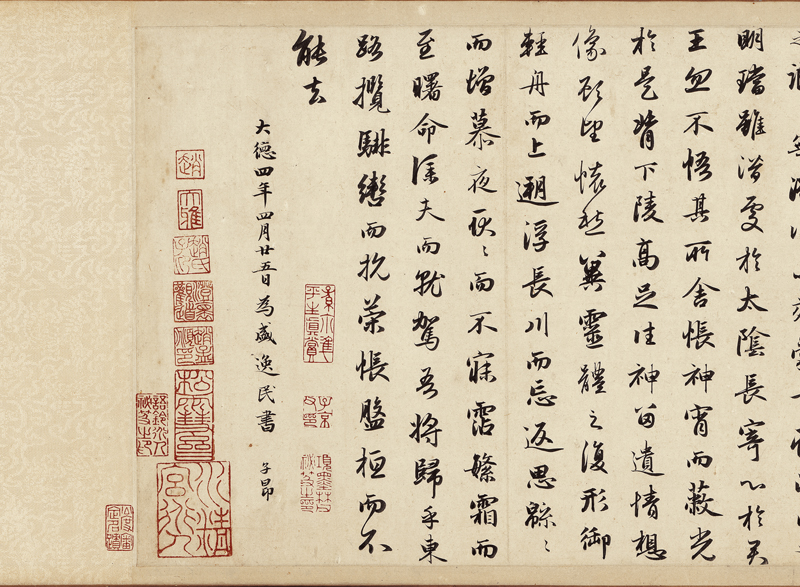 明璫雖潛處於太陰長寄心於君
王忽不悟其所舍悵神宵而蔽光
於是背下陵高足往神留遺情想
像顧望懷愁冀靈體之復形御
輕舟而上遡浮長川而忘返思緜〻
而增慕夜耿〻而不寐霑繁霜而
至曙命僕夫而就駕吾將歸乎東
路攬騑轡而抗策悵盤桓而不
能去
子京父印
大德四年四月廿五日為盛逸民書 子昂
趙
大雅
趙氏子昂
澄懷觀道
松雪齋